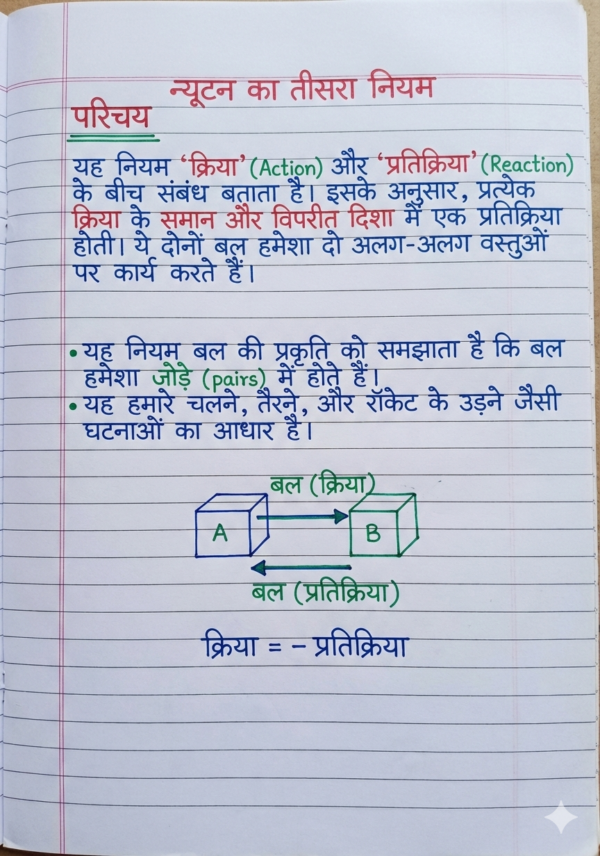 न्यूटन का तीसरा नियम
परिचय
यह नियम ‘क्रिया’ (Action) और ‘प्रतिक्रिया’ (Reaction)
के बीच संबंध बताता है। इसके अनुसार, प्रत्येक
क्रिया के समान और विपरीत दिशा में एक प्रतिक्रिया
होती। ये दोनों बल हमेशा दो अलग-अलग वस्तुओं
पर कार्य करते हैं।
• यह नियम बल की प्रकृति को समझाता है कि बल
हमेशा जोड़े (pairs) में होते हैं।
• यह हमारे चलने, तैरने, और रॉकेट के उड़ने जैसी
घटनाओं का आधार है।
बल (क्रिया)
A B
बल (प्रतिक्रिया)
क्रिया = - प्रतिक्रिया